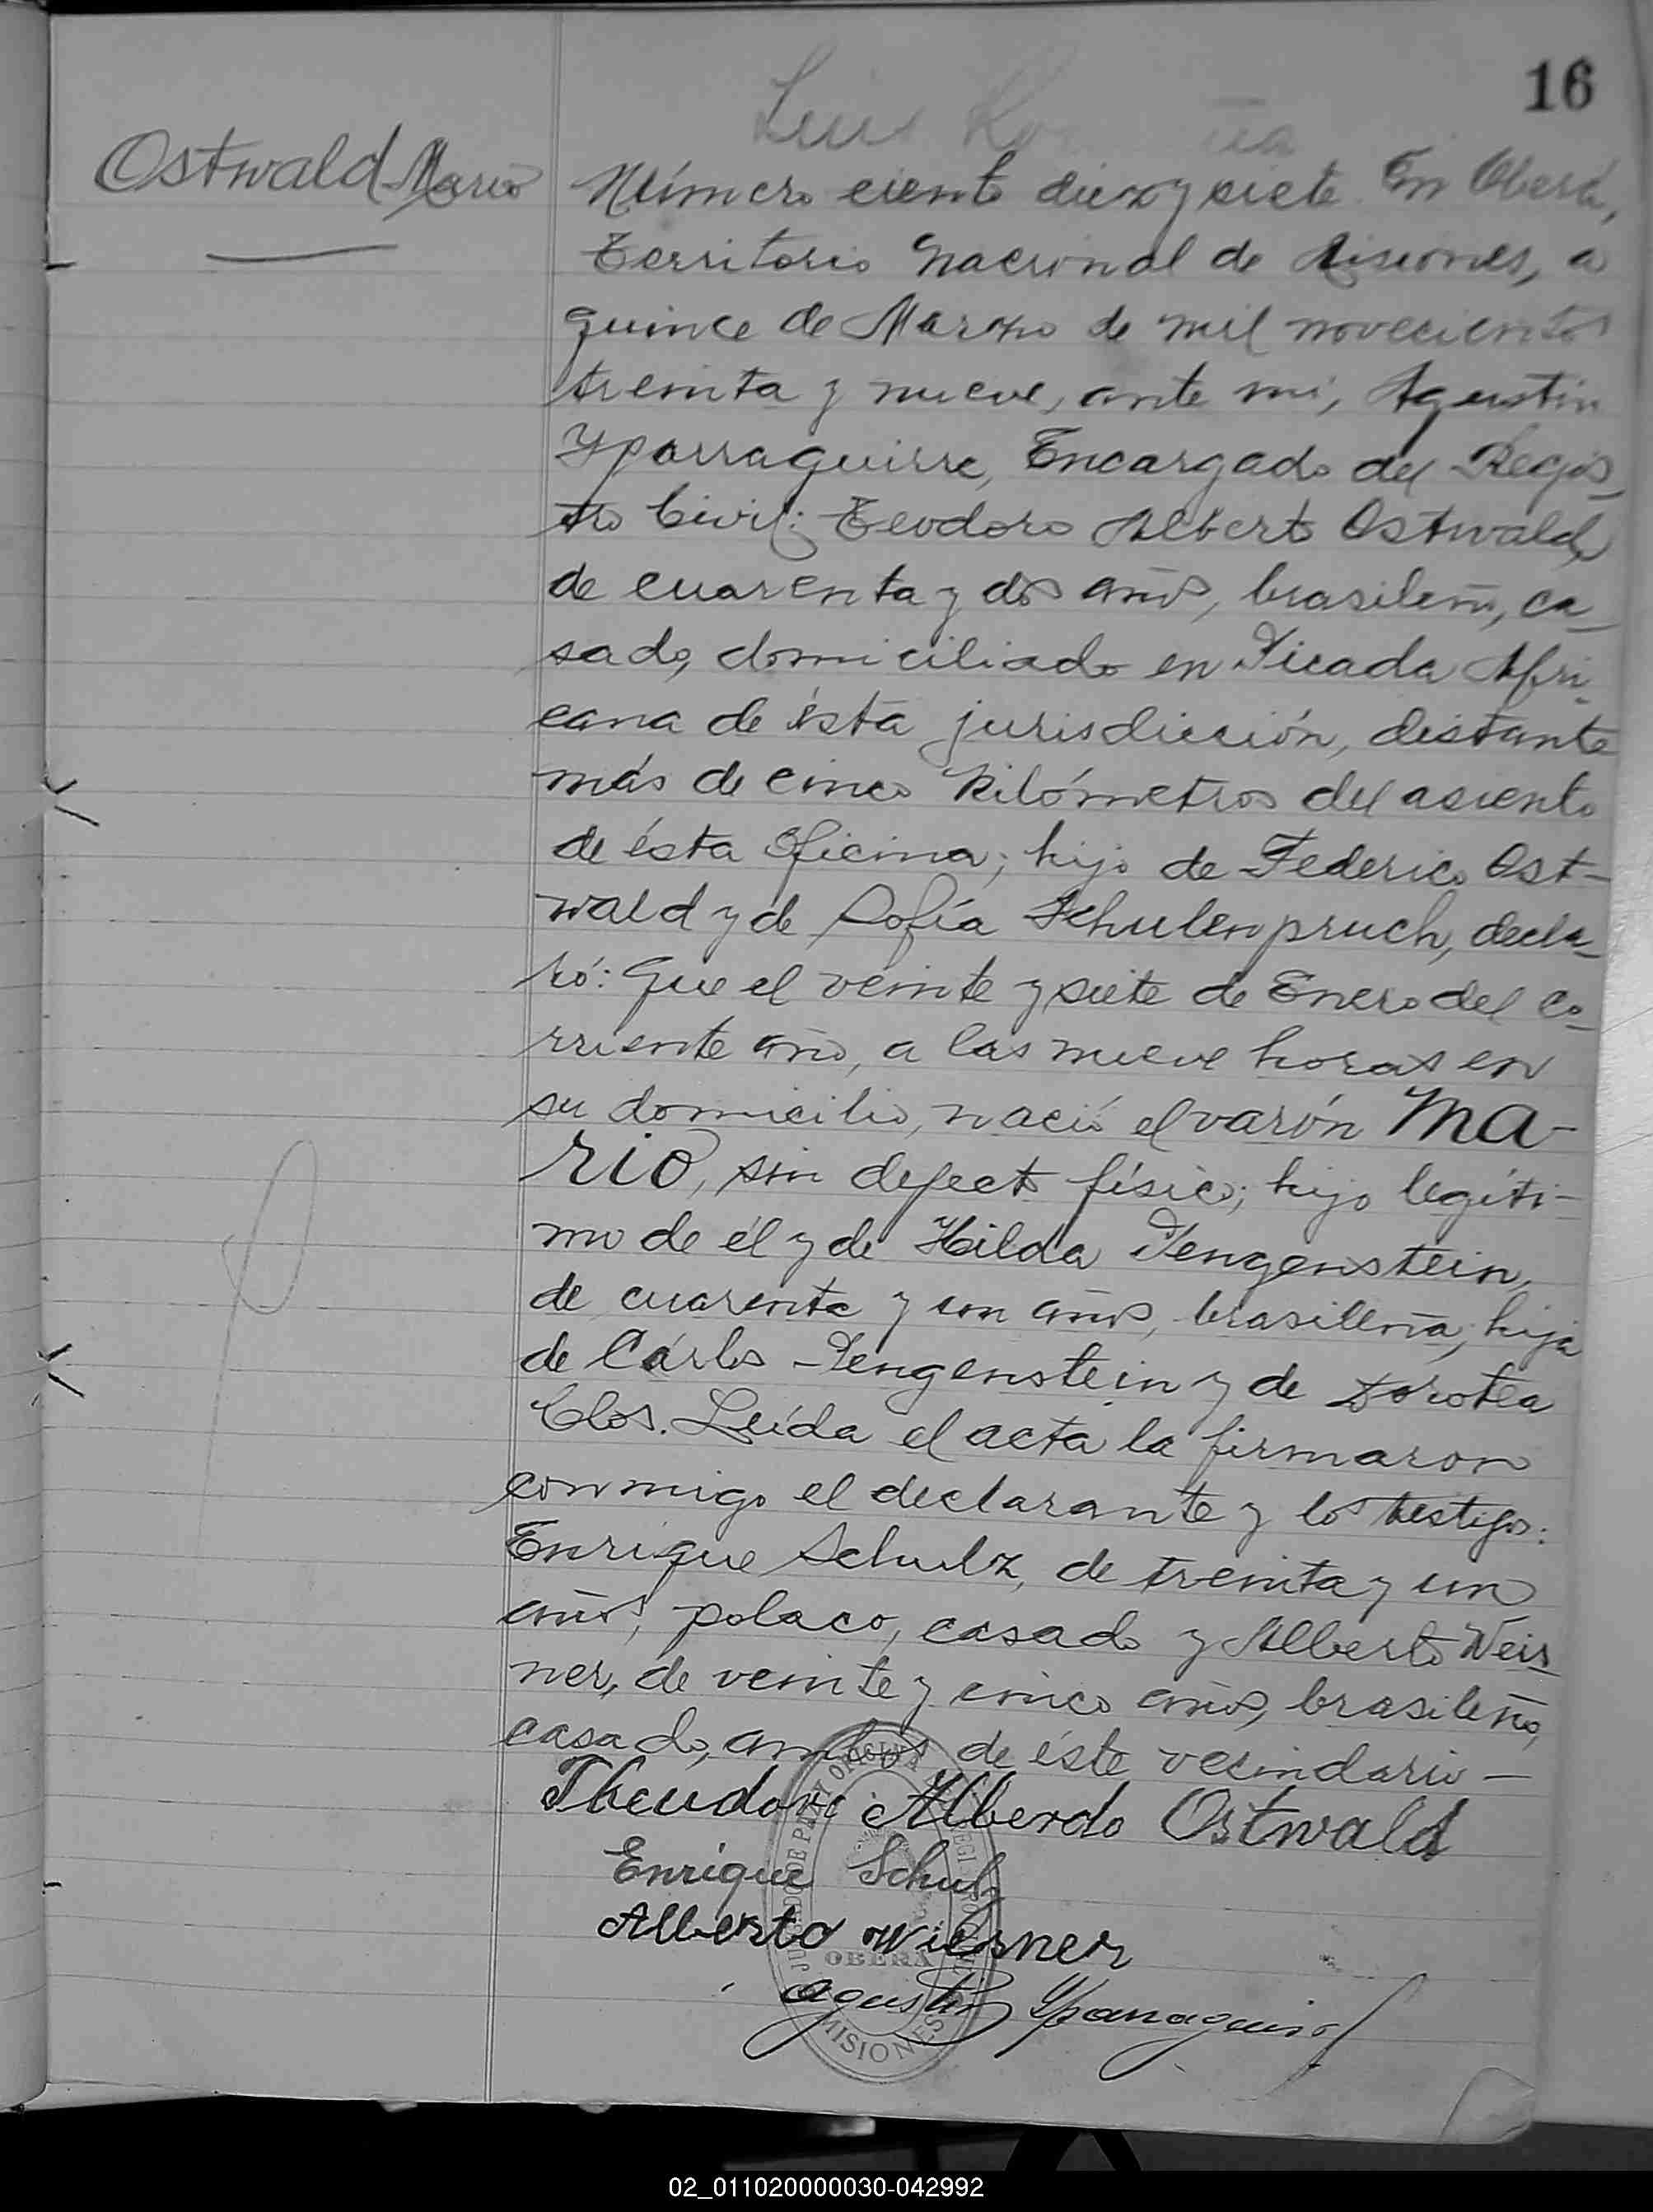 16
Luis
Ostwald Mario
Número ciento diez y siete. En Oberá,
Territorio Nacional de Misiones, a
quince de Marzo de mil novecientos
treinta y nueve, ante mí, Agustín
Yparraguirre, Encargado del Regis_
tro Civil: Teodoro Alberto Ostwald,
de cuarenta y dos años, brasileño, ca_
sado, domiciliado en Picada Afri_
cana de ésta jurisdicción, distante
más de cinco kilómetros del asiento
de ésta Oficina; hijo de Federico Ost-
wald y de Sofía Schulenpruch, decla_
ró: Que el veinte y siete de Enero del co_
rriente año, a las nueve horas en
su domicilio, nació el varón Ma-
rio, sin defecto físico; hijo legíti-
mo de él y de Hilda Tengenstein,
de cuarenta y un años, brasileña, hija
de Cárlos Tengenstein y de Dorotea
Clos. Leída el acta la firmaron
conmigo el declarante y los testigos:
Enrique Schulz, de treinta y un
años, polaco, casado y Alberto Weis_
ner, de veinte y cinco años, brasileño,
casado, ambos de éste vecindario —
Theudoro Alberdo Ostwald
Enrique Schulz
Alberto Wiesner
Agustín Yparraguirre
JUZGADO DE PAZ Y OFICINA REGISTRO CIVIL
OBERÁ
MISIONES
02_011020000030-042992